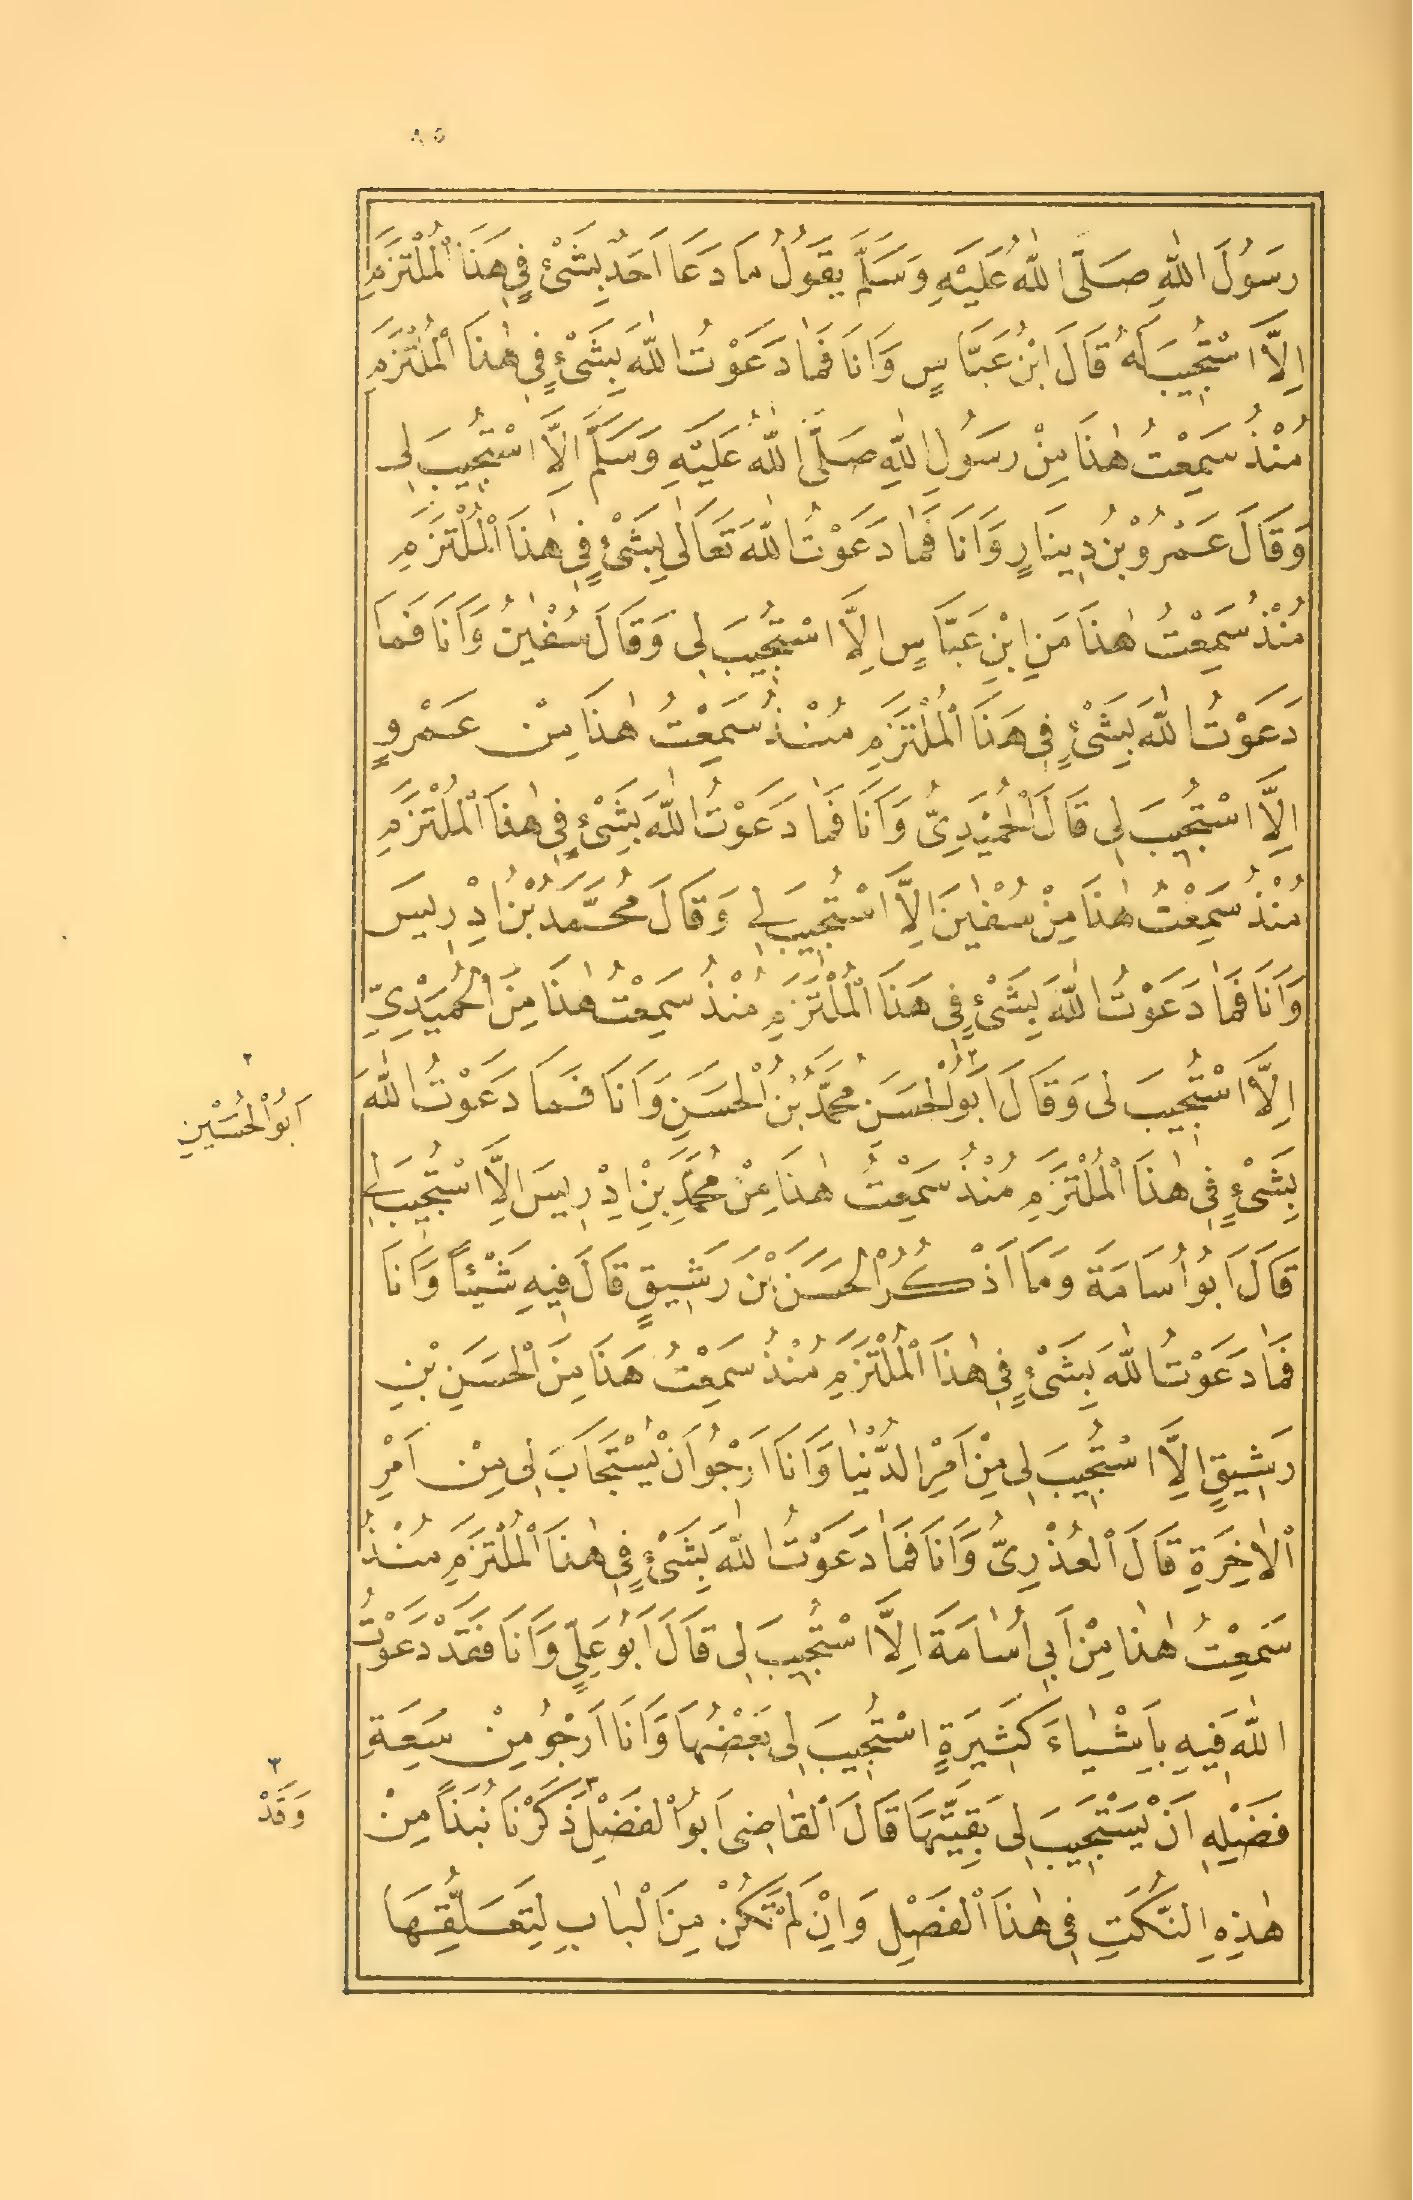 ٨٥
رَسُولَ اللّٰهِ صَلَّى اللّٰهُ عَلَيْهِ وَسَلَّمَ يَقُولُ مَا دَعَا اَحَدٌ بِشَىْءٍ فِى هٰذَا الْمُلْتَزَمِ
اِلَّا اسْتُجِيبَ لَهُ قَالَ ابْنُ عَبَّاسٍ وَاَنَا فَمَا دَعَوْتُ اللّٰهَ بِشَىْءٍ فِى هٰذَا الْمُلْتَزَمِ
مُنْذُ سَمِعْتُ هٰذَا مِنْ رَسُولِ اللّٰهِ صَلَّى اللّٰهُ عَلَيْهِ وَسَلَّمَ اِلَّا اسْتُجِيبَ لِى
وَقَالَ عَمْرُو بْنُ دِينَارٍ وَاَنَا فَمَا دَعَوْتُ اللّٰهَ تَعَالٰى بِشَىْءٍ فِى هٰذَا الْمُلْتَزَمِ
مُنْذُ سَمِعْتُ هٰذَا مِنِ ابْنِ عَبَّاسٍ اِلَّا اسْتُجِيبَ لِى وَقَالَ سُفْيٰنُ وَاَنَا فَمَا
دَعَوْتُ اللّٰهَ بِشَىْءٍ فِى هٰذَا الْمُلْتَزَمِ مُنْذُ سَمِعْتُ هٰذَا مِنْ عَمْرٍو
اِلَّا اسْتُجِيبَ لِى قَالَ الْحُمَيْدِىُّ وَاَنَا فَمَا دَعَوْتُ اللّٰهَ بِشَىْءٍ فِى هٰذَا الْمُلْتَزَمِ
مُنْذُ سَمِعْتُ هٰذَا مِنْ سُفْيٰنَ اِلَّا اسْتُجِيبَ لِى وَقَالَ مُحَمَّدُ بْنُ اِدْرِيسَ
وَاَنَا فَمَا دَعَوْتُ اللّٰهَ بِشَىْءٍ فِى هٰذَا الْمُلْتَزَمِ مُنْذُ سَمِعْتُ هٰذَا مِنَ الْحُمَيْدِىِّ
اِلَّا اسْتُجِيبَ لِى وَقَالَ اَبُو الْحَسَنِ٢ مُحَمَّدُ بْنُ الْحَسَنِ وَاَنَا فَمَا دَعَوْتُ اللّٰهَ
٢
اَبُو الْحُسَيْنِ
بِشَىْءٍ فِى هٰذَا الْمُلْتَزَمِ مُنْذُ سَمِعْتُ هٰذَا مِنْ مُحَمَّدِ بْنِ اِدْرِيسَ اِلَّا اسْتُجِيبَ لِى
قَالَ اَبُو اُسَامَةَ وَمَا اَذْكُرُ الْحَسَنَ بْنَ رَشِيقٍ قَالَ فِيهِ شَيْئًا وَاَنَا
فَمَا دَعَوْتُ اللّٰهَ بِشَىْءٍ فِى هٰذَا الْمُلْتَزَمِ مُنْذُ سَمِعْتُ هٰذَا مِنَ الْحَسَنِ بْنِ
رَشِيقٍ اِلَّا اسْتُجِيبَ لِى مِنْ اَمْرِ الدُّنْيَا وَاَنَا اَرْجُو اَنْ يُسْتَجَابَ لِى مِنْ اَمْرِ
الْاٰخِرَةِ قَالَ الْعُذْرِىُّ وَاَنَا فَمَا دَعَوْتُ اللّٰهَ بِشَىْءٍ فِى هٰذَا الْمُلْتَزَمِ مُنْذُ
سَمِعْتُ هٰذَا مِنْ اَبِى اُسَامَةَ اِلَّا اسْتُجِيبَ لِى قَالَ اَبُو عَلِىٍّ وَاَنَا فَقَدْ دَعَوْتُ
اللّٰهَ فِيهِ بِاَشْيَاءَ كَثِيرَةٍ اسْتُجِيبَ لِى بَعْضُهَا وَاَنَا اَرْجُو مِنْ سَعَةِ
فَضْلِهِ اَنْ يَسْتَجِيبَ لِى بَقِيَّتَهَا قَالَ الْقَاضِى اَبُو الْفَضْلِ٣ ذَكَرْنَا نُبَذًا مِنْ
٣
وَقَدْ
هٰذِهِ النُّكَتِ فِى هٰذَا الْفَصْلِ وَاِنْ لَمْ تَكُنْ مِنَ الْبَابِ لِتَعَلُّقِهَا